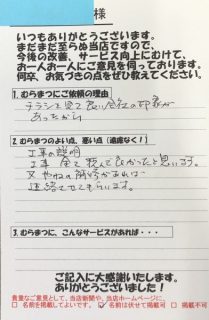 様
いつもありがとうございます。
まだまだ至らぬ当店ですので、
今後の改善、サービス向上にむけて、
お一人お一人にご意見を伺っております。
何卒、お気づきの点をぜひ教えてください。
1. むらまつにご依頼の理由
チラシを見て良い会社の印象が
あったから
2. むらまつのよい点、悪い点（遠慮なく！）
工事の説明
工事全て頼んで良かったと思います。
又やねの補修があれば
連絡させてもらいます。
3. むらまつに、こんなサービスがあれば・・・
ご記入に大感謝いたします。
ありがとうございました！
貴重なご意見として、当店新聞や、当店ホームページに、
□ 名前を掲載してよいです。 ☑ 名前を伏せて掲載可 □ 掲載不可